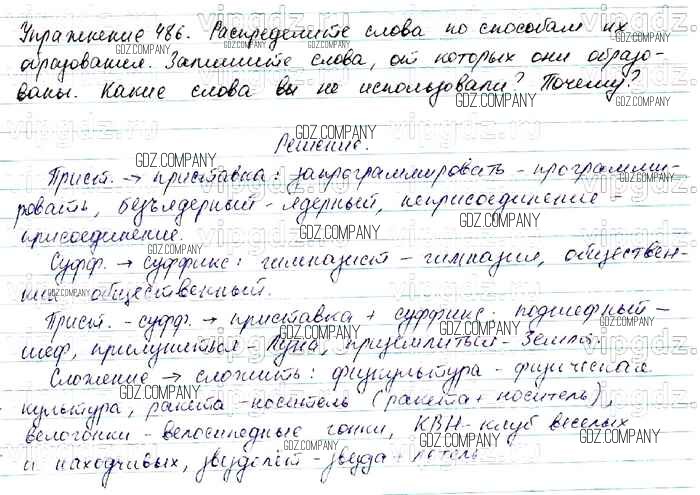 Упражнение 486. Распределите слова по способам их
образования. Запишите слова, от которых они образо-
ваны. Какие слова вы не использовали? Почему?
Решение.
Прист. → приставка: запрограммировать - программи-
ровать, безъядерный - ядерный, неприсоединение -
присоединение.
Суфф. → суффикс: гимназист - гимназия, обществен-
ник общественный.
Прист. - суфф. → приставка + суффикс: подшефный -
шеф, прилуниться - Луна, приземлиться - Земля.
Сложение → сложить: физкультура - физическая
культура, ракета-носитель (ракета + носитель),
велогонки - велосипедные гонки, КВН - клуб веселых
и находчивых, звездолёт - звезда +
GDZ.COMPANY
vipgdz.ru